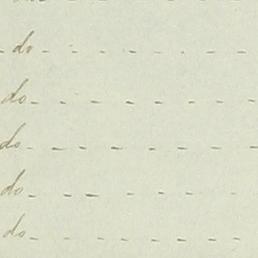 do - - - - - - -
do - - - - - - -
do - - - - - - -
do - - - - - - -
do - - - - - - -